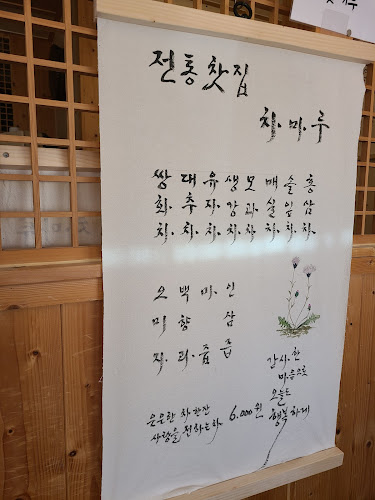 전통찻집
차.마.루
쌍화차.
대추차.
유자차.
생강차.
모과차.
매실차.
솔잎차.
홍삼차.
오미자.
백향과.
마.즙
인삼즙
감사.한
마음으로
오늘도
행복하게
은은한 차 한잔
사랑을 전하는차 6,000원